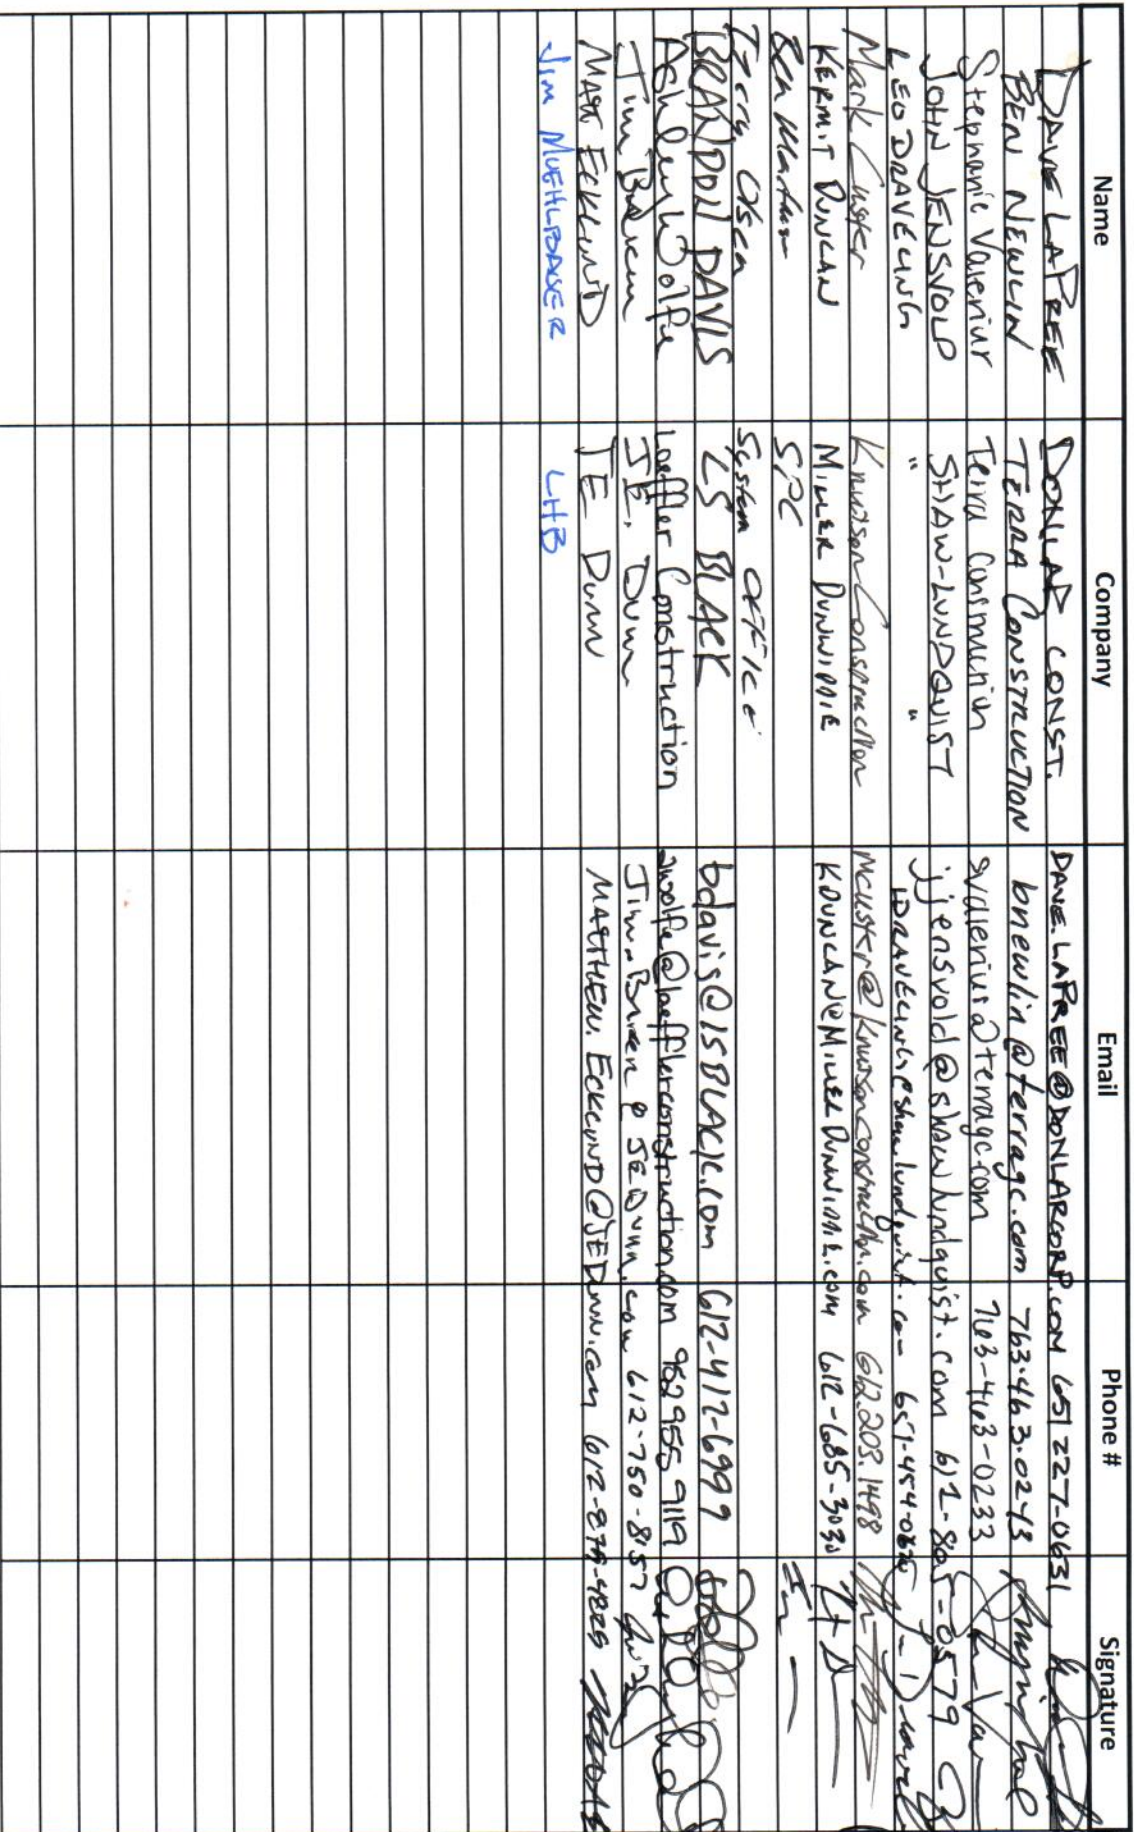 Name Company Email Phone # Signature
DAVE LAPREE DONLAR CONST. DAVE.LAPREE@DONLARCORP.COM 651 227-0631
BEN NEWLIN TERRA CONSTRUCTION bnewlin@terragc.com 763.463.0243
Stephanie Valerius Terra Construction svalerius@terragc.com 763-463-0233
JOHN JENSVOLD SHAW-LUNDQUIST jjensvold@shawlundquist.com 612-805-0579
LEO DRAVELING " " LDRAVELING@shawlundquist.com 651-454-0670
Mark Custer Knutson Construction mcuster@knutsonconstruction.com 612.203.1498
KERMIT DUNCAN MILLER DUNWIDDIE KDUNCAN@MILLERDUNWIDDIE.COM 612-685-3030
Ben Martin SPC
Terry Olsen System Office
BRANDON DAVIS LS BLACK bdavis@lSBLACK.com 612-412-6999
Ashley Wolfe Loeffler Construction awolfe@loefflerconstruction.com 952 955 9119
Jim J.E. Dunn 612-750-8157
MATT ECKLUND JE Dunn MATTHEW.ECKLUND@JEDunn.com
JIM LHB